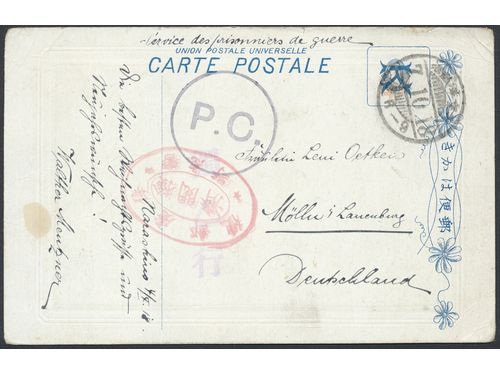 Service des prisonniers de guerre
UNION POSTALE UNIVERSELLE
CARTE POSTALE
P.C.
7.10.18
6-8
きかは便郵
行
Fräulein Leni Oetken
Mölln i/ Lauenburg
Deutschland
Die besten Weihnachtsgrüsse und
Neujahrswünsche!
Walther
Narashino